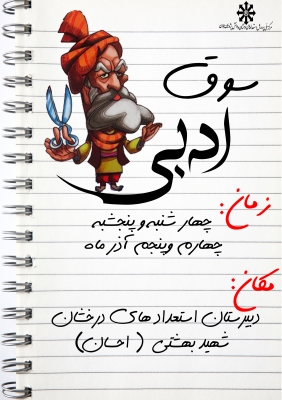 سوق
ادبی
زمان:
چهار شنبه و پنجشنبه
چهارم و پنجم آذر ماه
مکان:
دبیرستان استعداد های درخشان
شهید بهشتی (احسان)